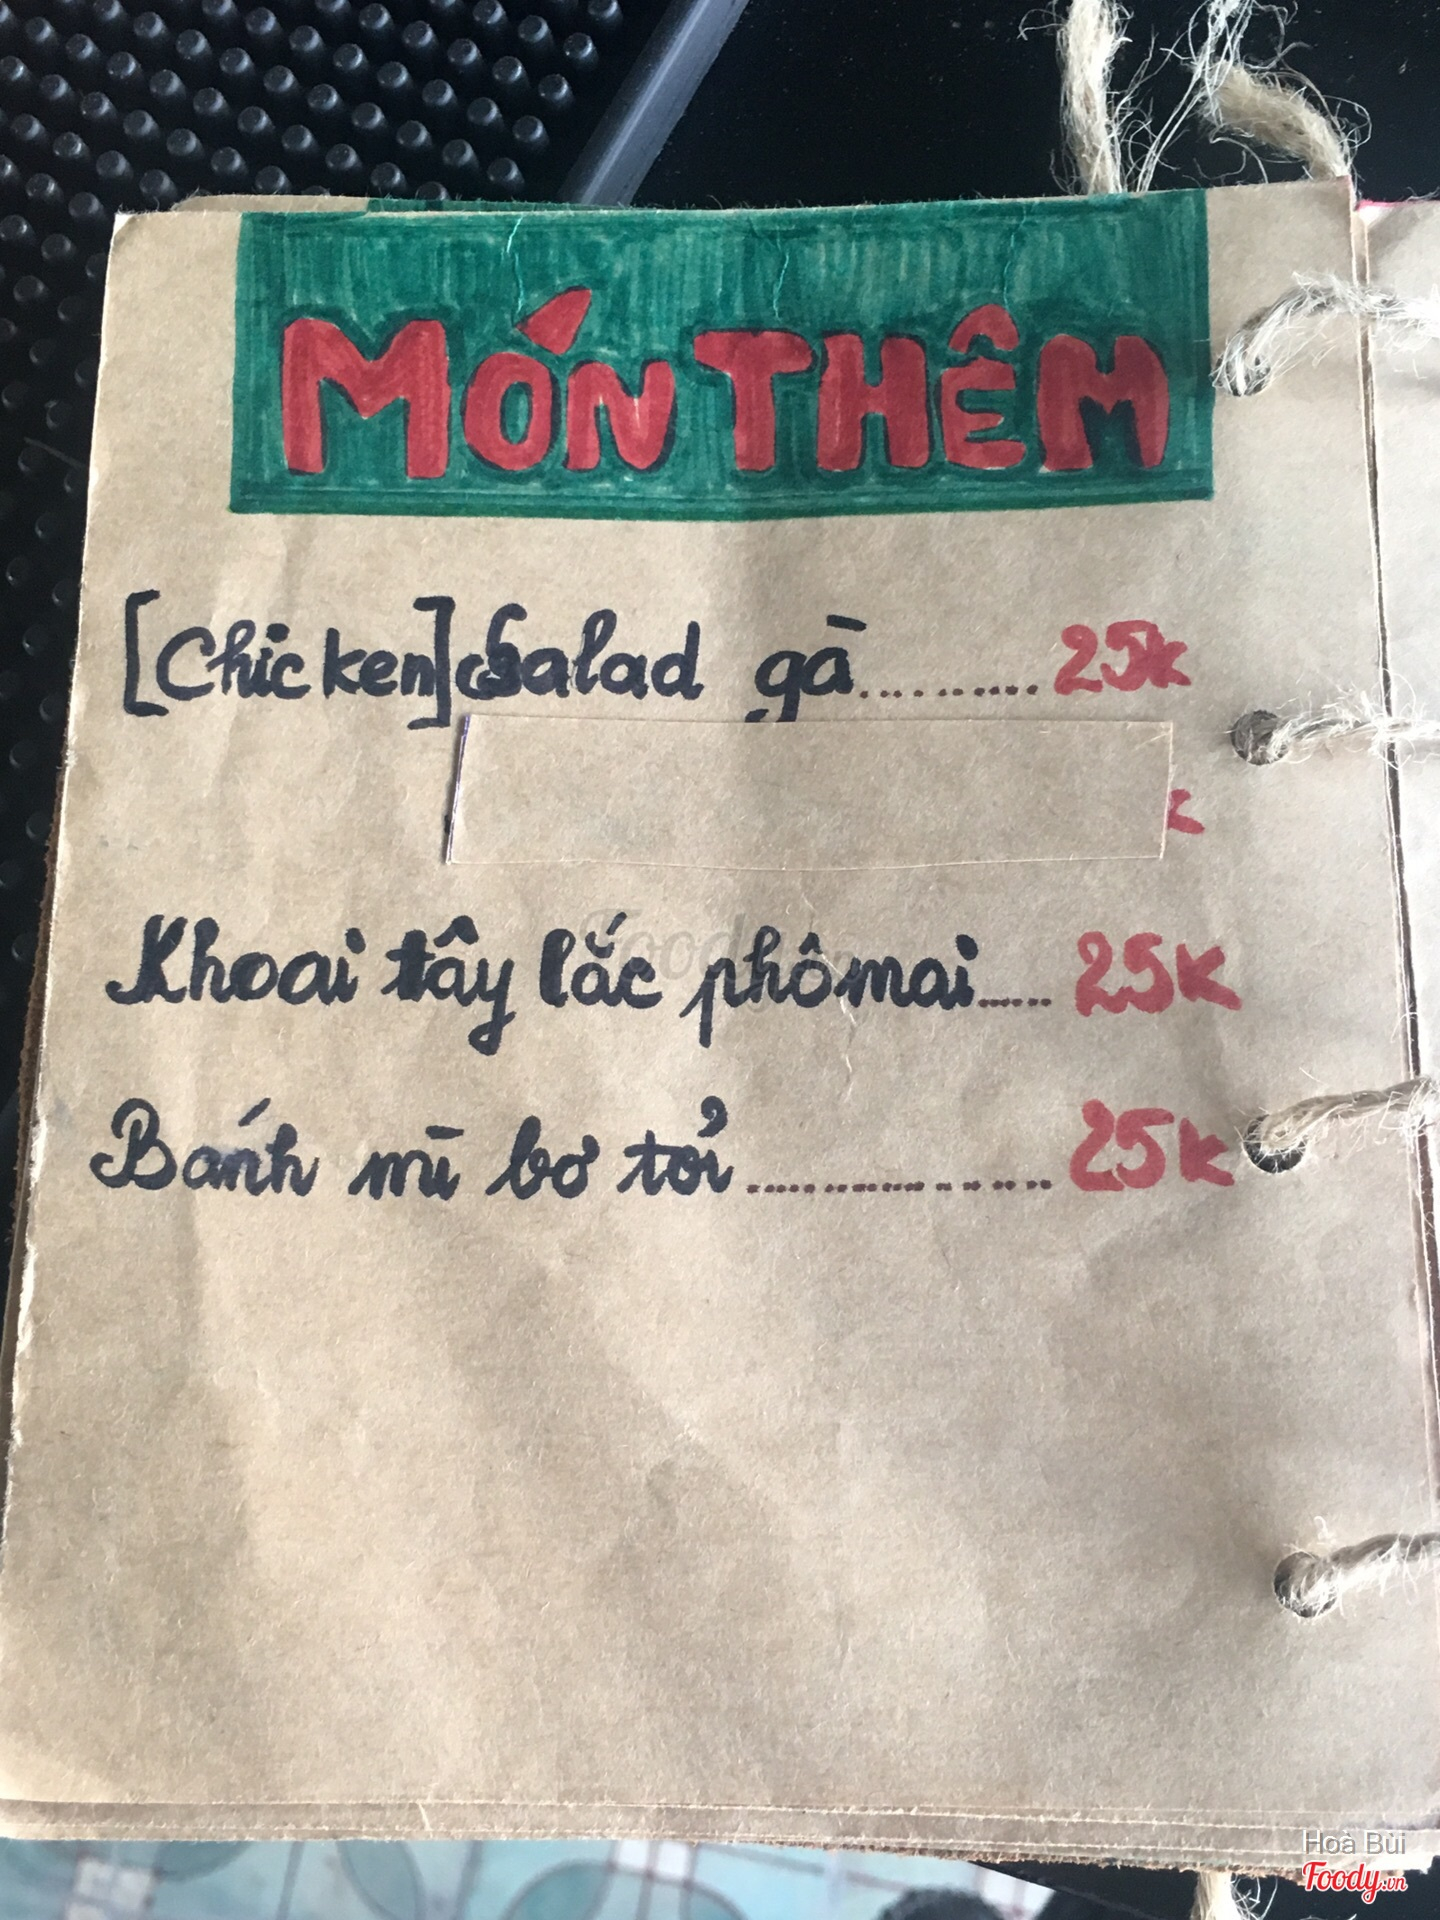 MÓN THÊM
[Chicken] Salad gà.......... 25k
k
Khoai tây lắc phômai...... 25K
Bánh mì bơ tỏi................... 25k
Foody
Hoà Bùi
Foody.vn